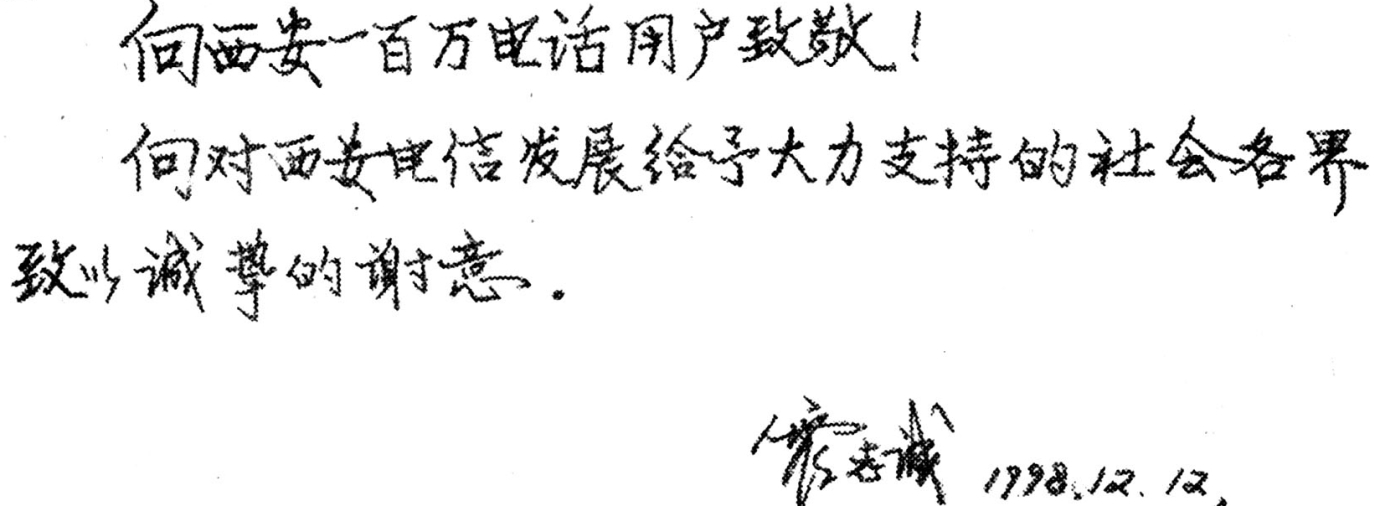 向西安一百万电话用户致敬！
向对西安电信发展给予大力支持的社会各界
致以诚挚的谢意.
志诚 1998.12.12.